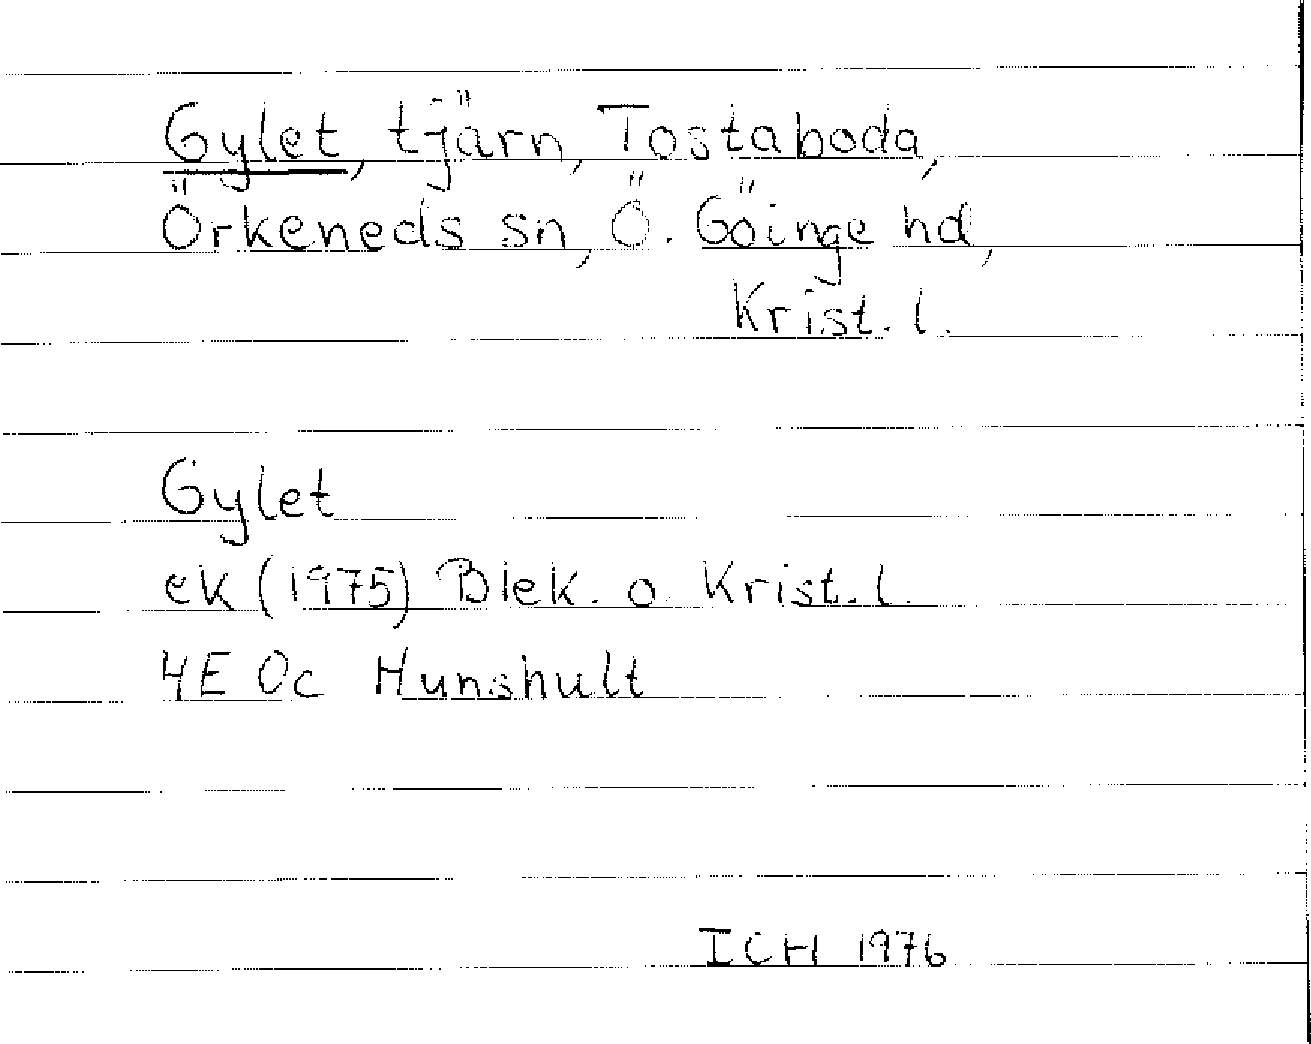 Gylet, tjärn, Tostaboda,
Örkeneds sn, Ö. Göinge hd,
Krist. l.
Gylet
ek (1975) Blek. o. Krist. l.
4E 0c Hunshult
ICH 1976